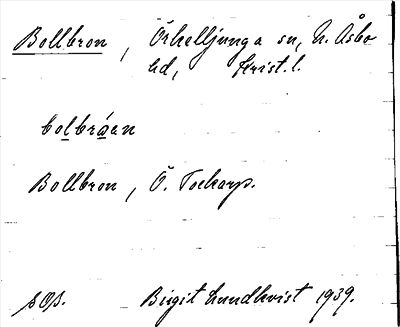 Bollbron, Örkelljunga sn, N. Åsbo
hd, Krist. l.
bolbråen
Bollbron, Ö. Tockarp.
Birgit Lundkvist 1939.